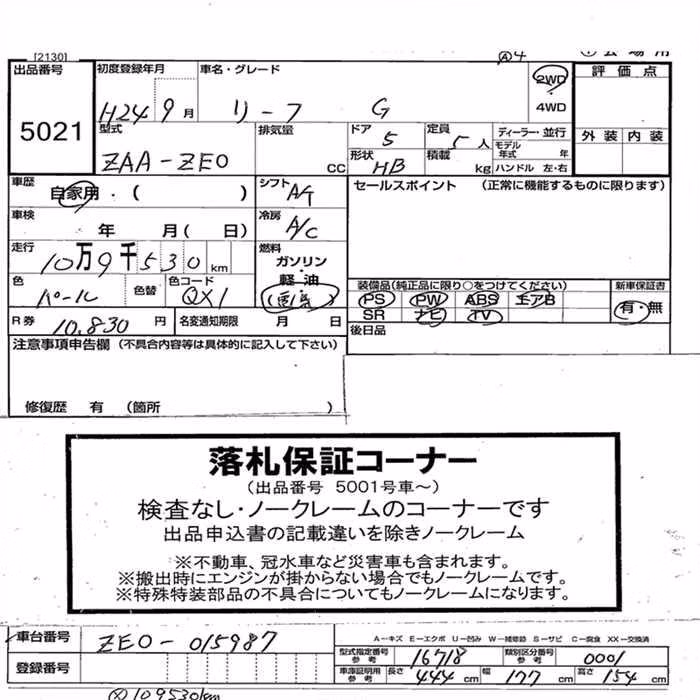 [2130]
Ⓐ4
出品番号 5021
初度登録年月 H24 9月
車名・グレード リーフ G
2WD
4WD
評価点
外装 内装
型式 ZAA-ZE0
排気量 CC
ドア 5
定員 5人
形状 HB
積載 kg
ディーラー・並行
モデル年式 年
ハンドル 左・右
車歴 自家用・( )
シフト AT
セールスポイント (正常に機能するものに限ります)
車検 年 月( 日)
冷房 A/C
走行 10万9千530km
燃料 ガソリン・軽油 (電気)
色 パール
色替
色コード QX1
装備品(純正品に限り○をつけてください)
新車保証書
PS PW ABS エアB
有・無
SR ナビ TV
R券 10,830円
名変通知期限 月 日
後日品
注意事項申告欄 (不具合内容等は具体的に記入して下さい)
修復歴 有 (箇所 )
落札保証コーナー
(出品番号 5001号車～)
検査なし・ノークレームのコーナーです
出品申込書の記載違いを除きノークレーム
※不動車、冠水車など災害車も含まれます。
※搬出時にエンジンが掛からない場合でもノークレームです。
※特殊特装部品の不具合についてもノークレームになります。
車台番号 ZE0-015987
A-キズ E-エクボ U-凹み W-補修跡 S-サビ C-腐食 XX-交換済
型式指定番号 参考 16718
類別区分番号 参考 0001
登録番号
車庫証明用 参考 長さ 444cm 幅 177cm 高さ 154cm
109530km